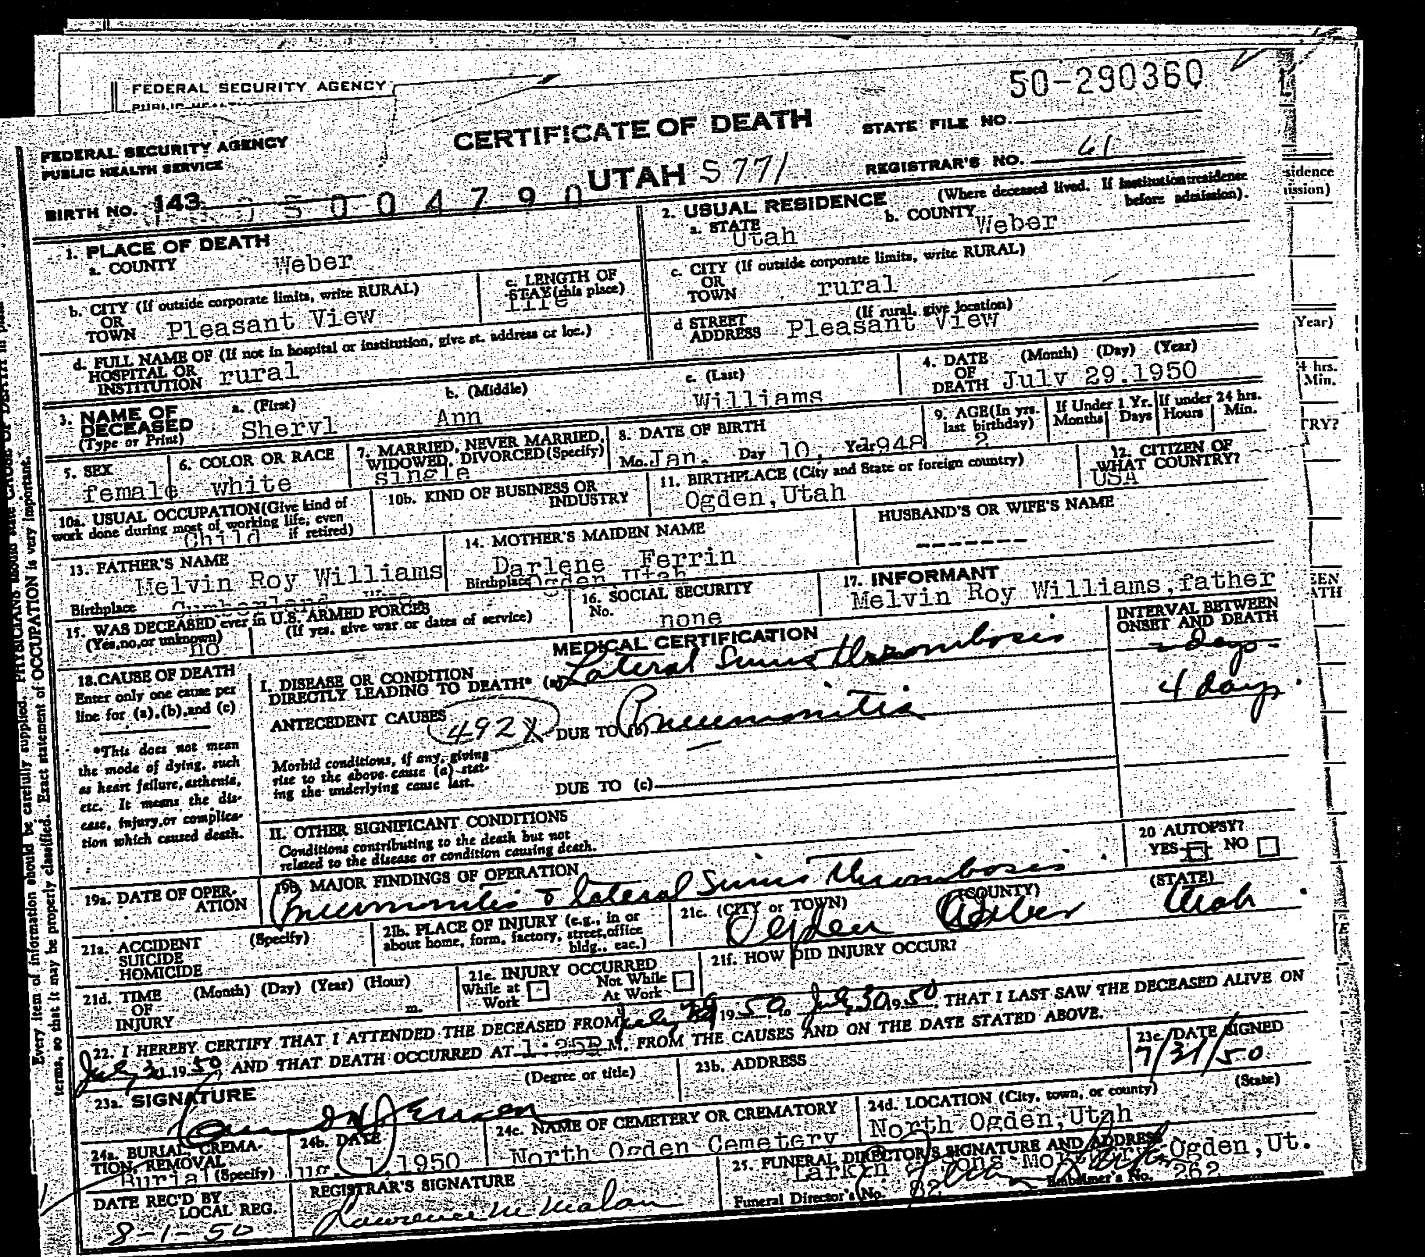 50-290360
FEDERAL SECURITY AGENCY
FEDERAL SECURITY AGENCY
PUBLIC HEALTH SERVICE
CERTIFICATE OF DEATH
STATE FILE NO.
UTAH S 771
REGISTRAR'S NO. 61
BIRTH NO. 143
5 0 0 4 7 9 0
1. PLACE OF DEATH
a. COUNTY Weber
2. USUAL RESIDENCE (Where deceased lived. If institution: residence before admission).
a. STATE Utah b. COUNTY Weber
b. CITY (If outside corporate limits, write RURAL) OR TOWN Pleasant View
c. LENGTH OF STAY (this place) life
c. CITY (If outside corporate limits, write RURAL) OR TOWN rural
d. FULL NAME OF (If not in hospital or institution, give st. address or loc.) HOSPITAL OR INSTITUTION rural
d STREET ADDRESS (If rural, give location) Pleasant View
3. NAME OF DECEASED (Type or Print) a. (First) Sheryl b. (Middle) Ann c. (Last) Williams
4. DATE OF DEATH (Month) (Day) (Year) July 29, 1950
5. SEX female
6. COLOR OR RACE white
7. MARRIED, NEVER MARRIED, WIDOWED, DIVORCED (Specify) single
8. DATE OF BIRTH Mo. Jan. Day 10, Year 1948
9. AGE (In yrs. last birthday) 2
If Under 1 Yr. Months Days
If under 24 hrs. Hours Min.
10a. USUAL OCCUPATION (Give kind of work done during most of working life, even if retired) Child
10b. KIND OF BUSINESS OR INDUSTRY
11. BIRTHPLACE (City and State or foreign country) Ogden, Utah
12. CITIZEN OF WHAT COUNTRY? USA
13. FATHER'S NAME Melvin Roy Williams
Birthplace
14. MOTHER'S MAIDEN NAME Darlene Ferrin
Birthplace Ogden Utah
HUSBAND'S OR WIFE'S NAME -------
15. WAS DECEASED ever in U.S. ARMED FORCES (Yes, no, or unknown) (If yes, give war or dates of service) no
16. SOCIAL SECURITY No. none
17. INFORMANT Melvin Roy Williams, father
MEDICAL CERTIFICATION
INTERVAL BETWEEN ONSET AND DEATH
18. CAUSE OF DEATH
Enter only one cause per line for (a), (b), and (c)
I. DISEASE OR CONDITION DIRECTLY LEADING TO DEATH* (a) Lateral Sinus Thrombosis
days
ANTECEDENT CAUSES 492X DUE TO (b) Pneumonitis
4 days.
Morbid conditions, if any, giving rise to the above cause (a) stating the underlying cause last.
DUE TO (c)
*This does not mean the mode of dying, such as heart failure, asthenia, etc. It means the disease, injury, or complication which caused death.
II. OTHER SIGNIFICANT CONDITIONS
Conditions contributing to the death but not related to the disease or condition causing death.
20 AUTOPSY? YES NO
19a. DATE OF OPERATION
19b. MAJOR FINDINGS OF OPERATION
Pneumonitis & lateral Sinus Thrombosis
21a. ACCIDENT SUICIDE HOMICIDE (Specify)
21b. PLACE OF INJURY (e.g., in or about home, form, factory, street, office bldg., eac.)
21c. (CITY or TOWN) (COUNTY) (STATE)
Ogden Weber Utah
21d. TIME OF INJURY (Month) (Day) (Year) (Hour) m.
21e. INJURY OCCURRED While at Work Not While At Work
21f. HOW DID INJURY OCCUR?
22. I HEREBY CERTIFY THAT I ATTENDED THE DECEASED FROM July 1950 to July 30 1950 THAT I LAST SAW THE DECEASED ALIVE ON
July 1950, AND THAT DEATH OCCURRED AT 1:25P M. FROM THE CAUSES AND ON THE DATE STATED ABOVE.
23a. SIGNATURE (Degree or title)
23b. ADDRESS
23c. DATE SIGNED 7/31/50
24a. BURIAL, CREMATION, REMOVAL (Specify) Burial
24b. DATE 1, 1950
24c. NAME OF CEMETERY OR CREMATORY North Ogden Cemetery
24d. LOCATION (City, town, or county) (State) North Ogden, Utah
DATE REC'D BY LOCAL REG. 8-1-50
REGISTRAR'S SIGNATURE Lawrence M Malan
25. FUNERAL DIRECTOR'S SIGNATURE AND ADDRESS Larkin & Sons Ogden, Ut.
Funeral Director's No. Embalmer's No. 262
Every item of information should be carefully supplied.
terms, so that it may be properly classified. Exact statement of OCCUPATION is very important.